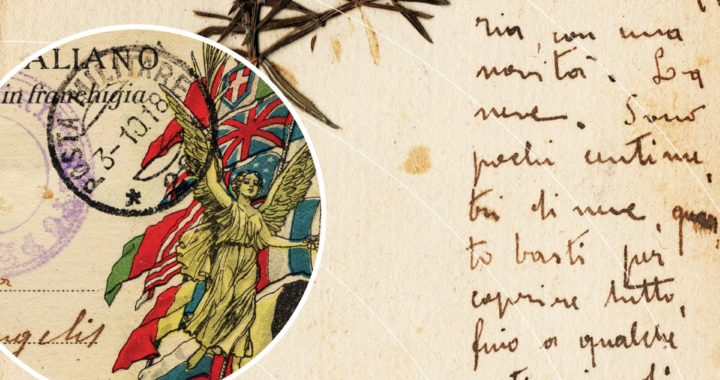 ALIANO
in franchigia
POSTA MILITARE
3-10.18
*
ngelis
ria, con una
novità. La
neve. Sono
pochi centime
tri di neve, quan
to basti per
coprire tutto,
fino a qualche